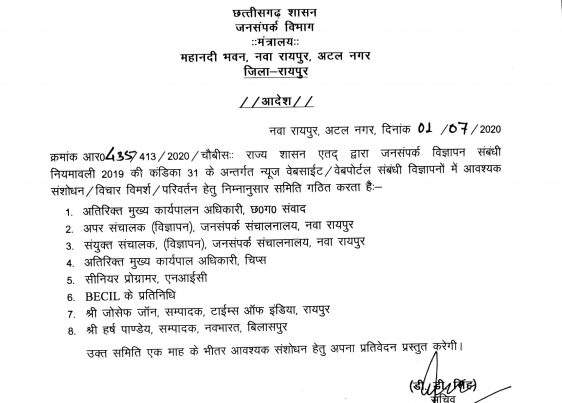 छत्तीसगढ़ शासन
जनसंपर्क विभाग
::मंत्रालय::
महानदी भवन, नवा रायपुर, अटल नगर
जिला–रायपुर
//आदेश//
नवा रायपुर, अटल नगर, दिनांक 01/07/2020
क्रमांक आर0435/413/2020/चौबीसः: राज्य शासन एतद् द्वारा जनसंपर्क विज्ञापन संबंधी
नियमावली 2019 की कंडिका 31 के अन्तर्गत न्यूज वेबसाईट/वेबपोर्टल संबंधी विज्ञापनों में आवश्यक
संशोधन/विचार विमर्श/परिवर्तन हेतु निम्नानुसार समिति गठित करता है:–
1. अतिरिक्त मुख्य कार्यपालन अधिकारी, छ0ग0 संवाद
2. अपर संचालक (विज्ञापन), जनसंपर्क संचालनालय, नवा रायपुर
3. संयुक्त संचालक, (विज्ञापन), जनसंपर्क संचालनालय, नवा रायपुर
4. अतिरिक्त मुख्य कार्यपाल अधिकारी, चिप्स
5. सीनियर प्रोग्रामर, एनआईसी
6. BECIL के प्रतिनिधि
7. श्री जोसेफ जॉन, सम्पादक, टाईम्स ऑफ इंडिया, रायपुर
8. श्री हर्ष पाण्डेय, सम्पादक, नवभारत, बिलासपुर
उक्त समिति एक माह के भीतर आवश्यक संशोधन हेतु अपना प्रतिवेदन प्रस्तुत करेगी।
(डी. डी. सिंह)
सचिव